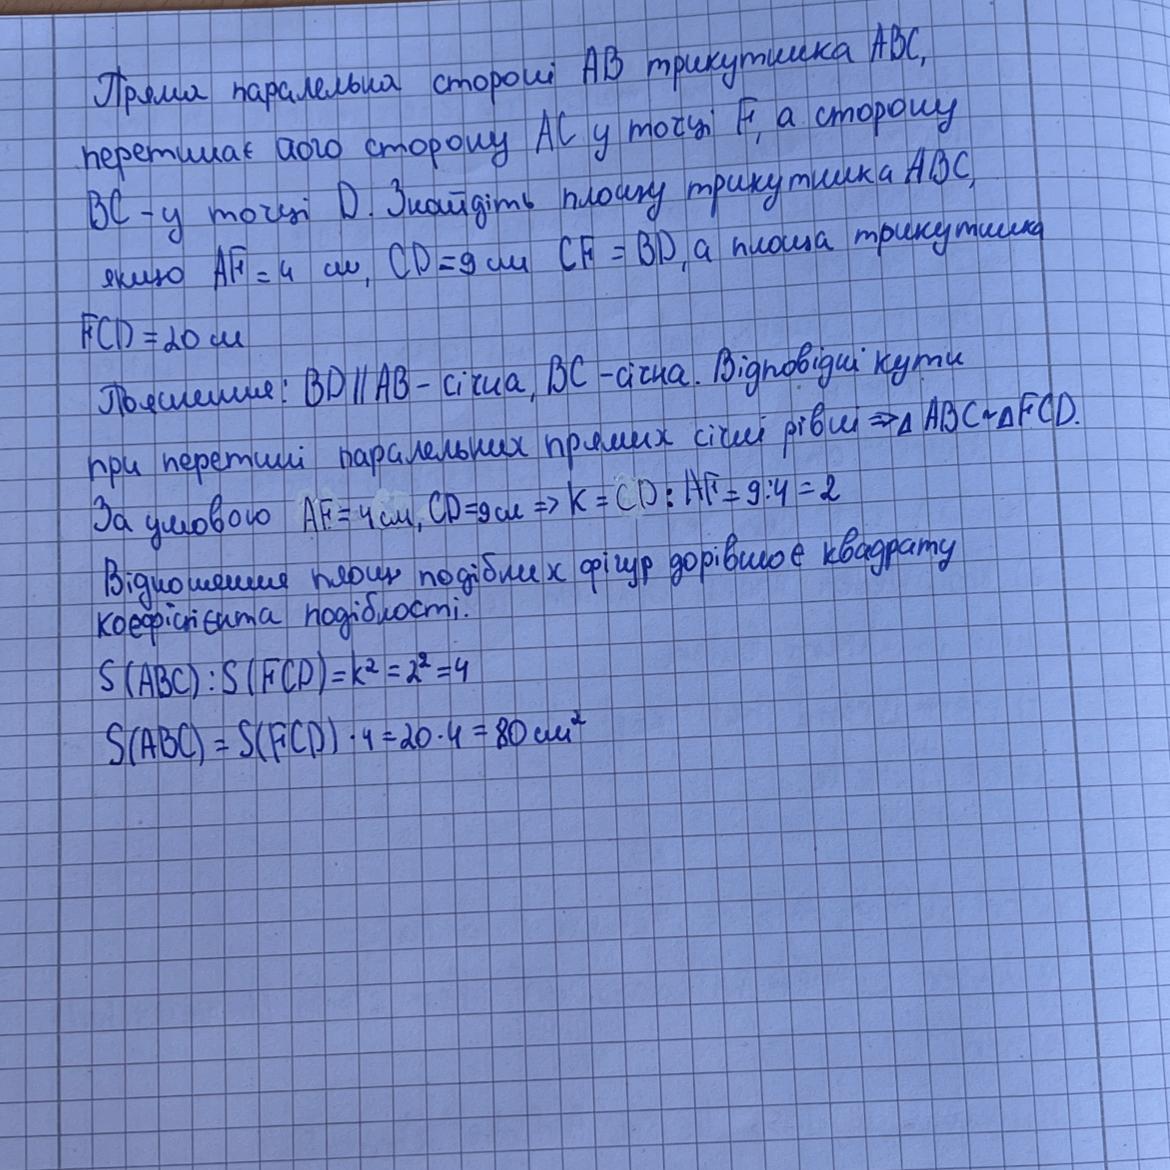 Пряма паралельна стороні AB трикутника ABC,
перетинає його сторону AC у точці F, а сторону
BC - у точці D. Знайдіть площу трикутника ABC,
якщо AF = 4 см, CD = 9 см CF = BD, а площа трикутника
FCD = 20 см
Пояснення: BD || AB - січна, BC - січна. Відповідні кути
при перетині паралельних прямих січні рівні => △ ABC ~ △ FCD.
За умовою AF = 4 см, CD = 9 см => K = CD : AF = 9 : 4 = 2
Відношення площ подібних фігур дорівнює квадрату
коефісієнта подібності.
S(ABC) : S(FCD) = k² = 2² = 4
S(ABC) = S(FCD) · 4 = 20 · 4 = 80 см²